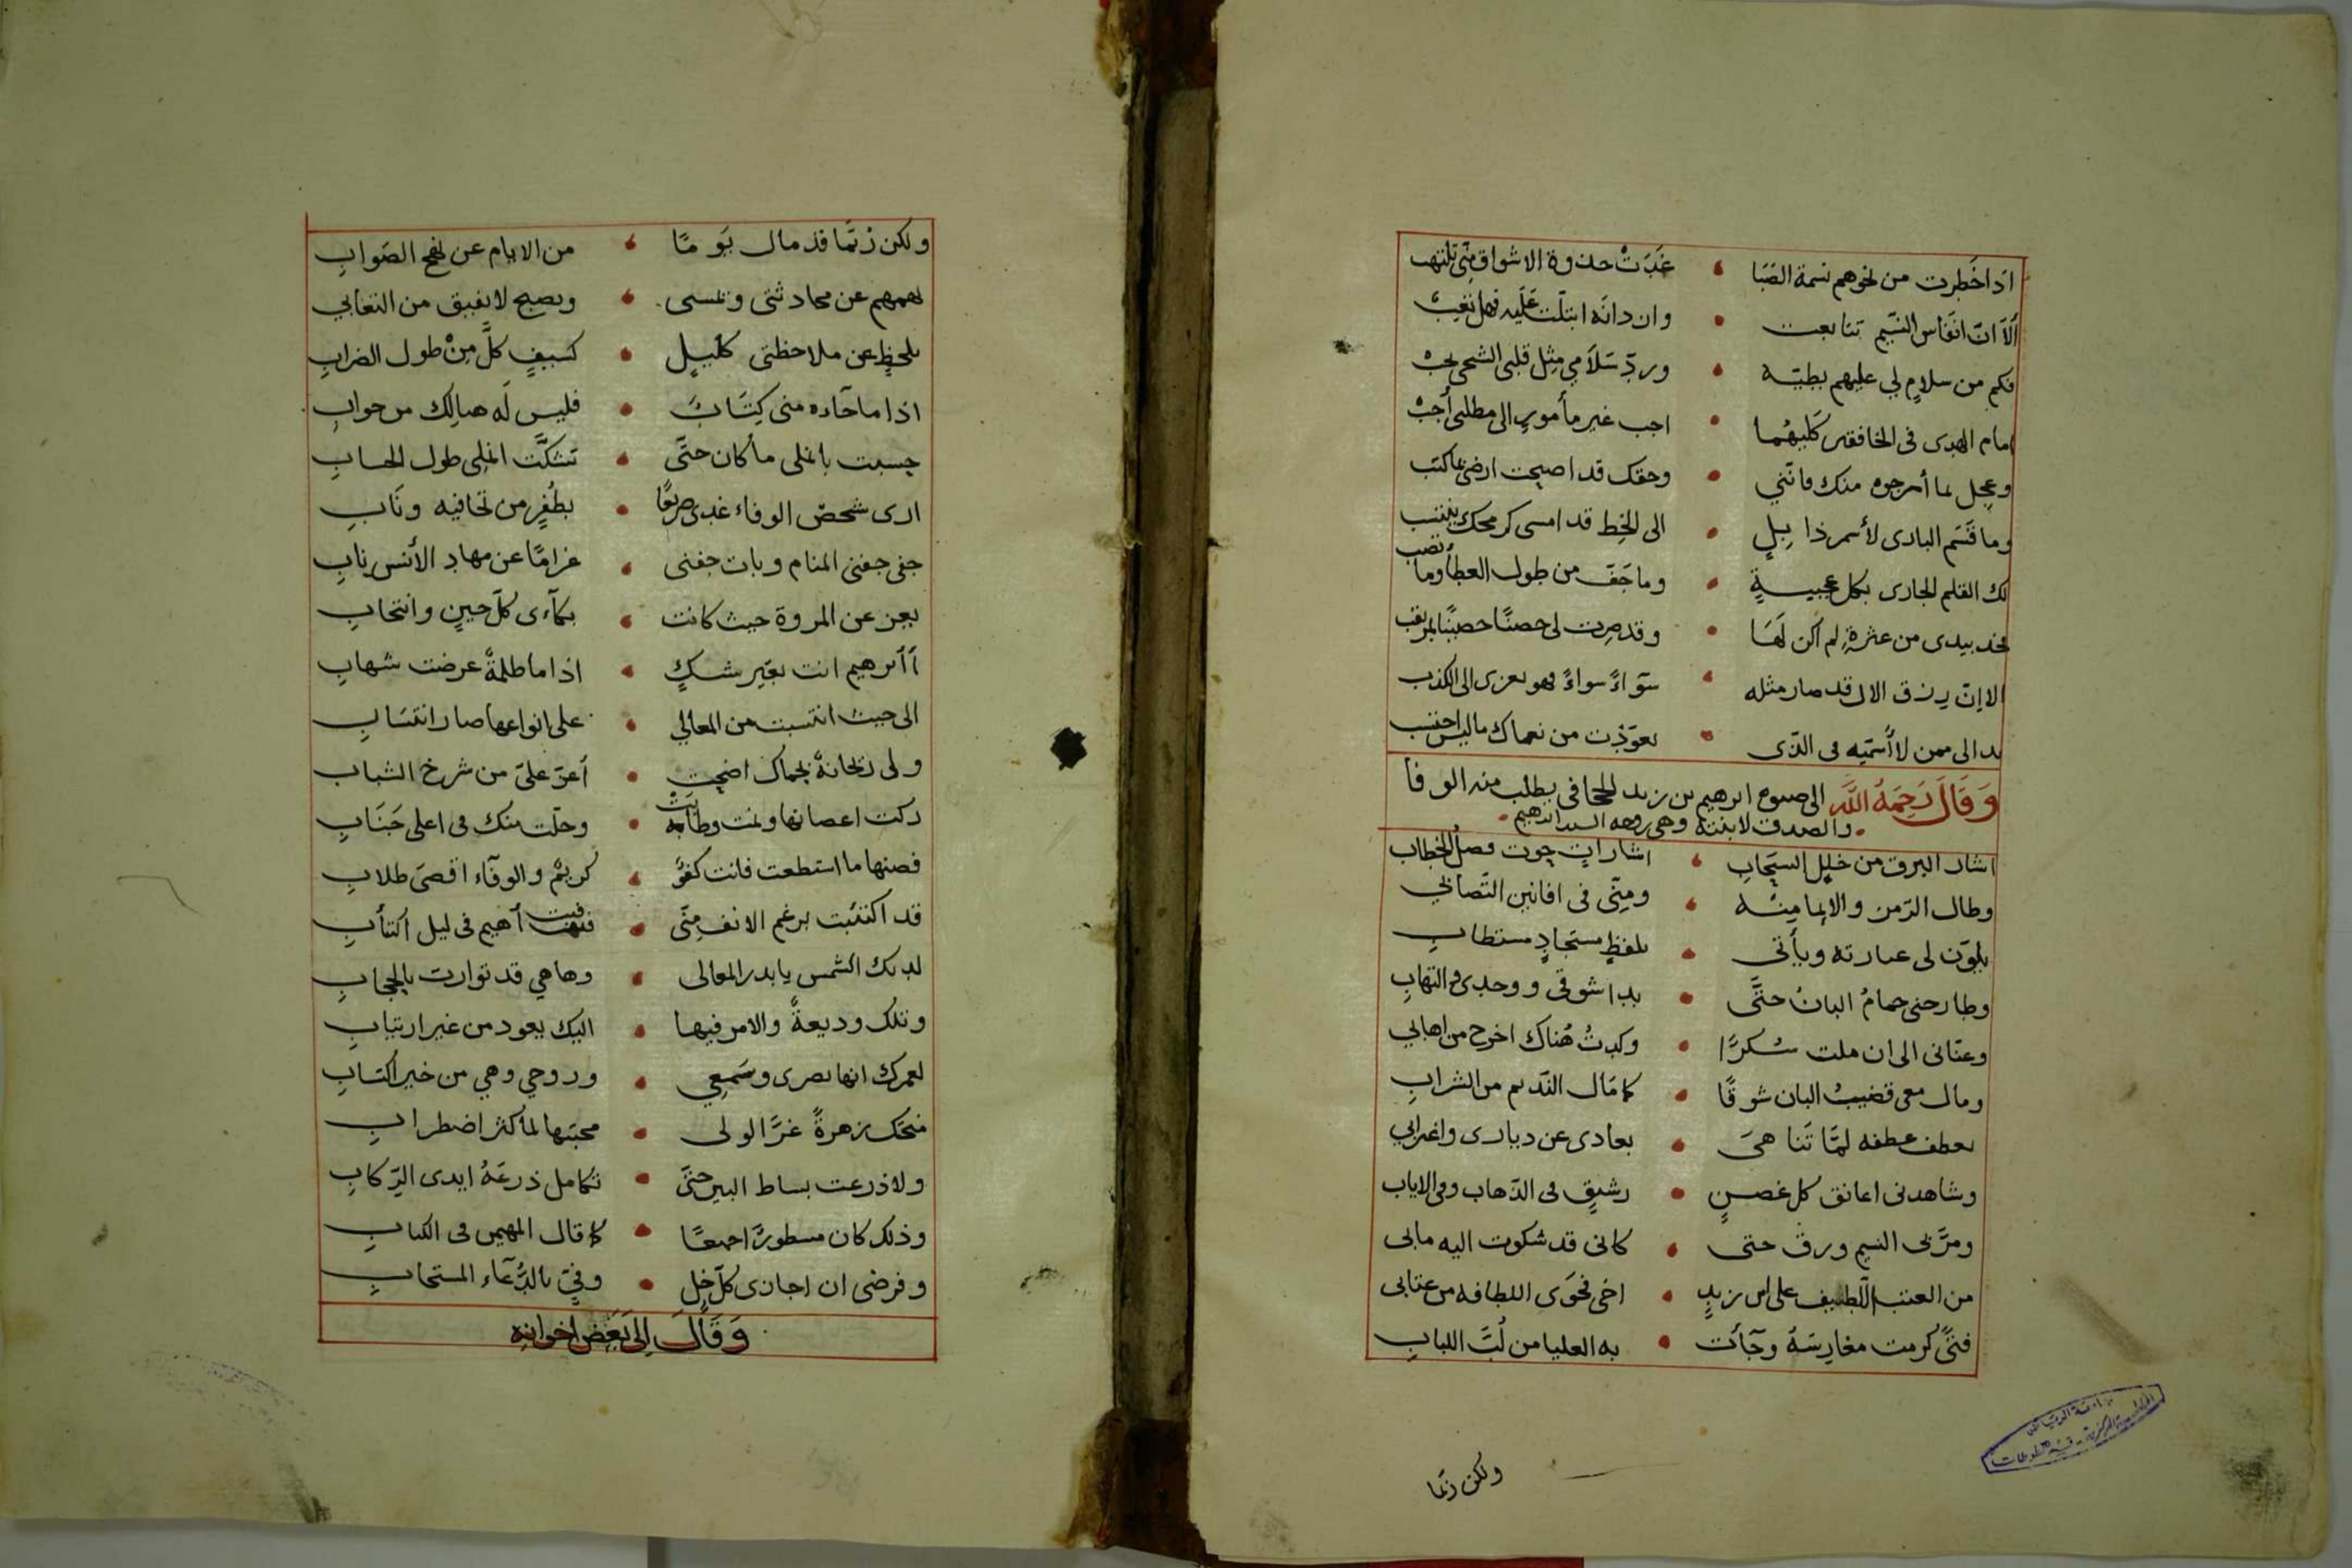 اذا خطرت من نحوهم نسمة الصَّبَا • غَدَتْ جذوة الاشواق مِنّي تلتهب
ألاَ انّ انفاس النسيم تتابعت • وان دانَه ابتلّت عَلَيه فهل تغِبْ
فكم من سلامٍ لي عليهم بطيّه • وردّ سَلاَمي مثل قلبي الشجى يجبْ
امام الهدى فى الخافقين كليهُما • اجب غير مأمورٍ الى مطلبى أجبْ
وعجِل لما أمرجوه منك فانّني • وحقك قد اصبحت ارضى بما كتب
وما قَسَم البارى لأسمر ذابِلٍ • الى الخِط قد امسى كرمحك ينتسب
لك القلم الجارى بكل عجيبةٍ • وما جَفّ من طول العطا وما نضب
فخذ بيدى من عثرةٍ لم اكن لَهَا • وقد صِرت لى حصنًا حصينًا لمرتقب
الا إنّ رزق الال قد صار مثله • سوآءً سواءً فهو يعزى الى الكذب
بدا لى ممن لا أُسمّيه فى الذى • تعوّذت من نعماك ما ليس احتسب
وَقَالَ رَحِمَهُ اللَّه الى صنوه ابرهيم بن زيد الجحافى يطلب منه الوفا
• والصدق لابنته وهى زوجة السيد ابرهيم •
اشار البرق من خلِل السَّحَابِ • اشاراتٍ حوت فصلُ الخطاب
وطال الرّمز والايما مِنْه • ومِنّى فى افانين التّصابي
يلوّن لى عبارته ويأتى • بلفظٍ مستجادٍ مستطابِ
وطارحنى حمامُ البانُ حتَّى • بدا شوقى ووجدى والتهابِ
وغنّانى الى ان ملت سُكرًا • وكدتُ هُناك اخرج من اهابي
ومال معى قضيبُ البان شوقًا • كما مَال النّديم من الشرابِ
يعطف عطفه لمّا تَناهىَ • بعادى عن ديارى واغترابي
وشاهدنى اعانق كل غصنٍ • رشيقٍ فى الذّهاب وفى الاياب
ومرّ بى النسيم ورقّ حتى • كانى قد شكوت اليه مابى
من العتب اللّطيف على ابن زيدٍ • اخى فحوَى اللطافه من عتابى
فتىً كرمت مغارِسَهُ وجآت • به العليا من لُبّ اللبابِ
ولكن ربّما
ولكن رُبّما قد مال يَومًا • من الايام عن نهج الصَوابِ
بلحظٍ عن ملاحظتى كليلٍ • كسيفٍ كلَّ مِنْ طول الضرابِ
اذا ما جآءه منى كِتَابٌ • فليس لَه هنالِك من جوابِ
حسبت بانملى ما كان حتّى • تشكَّت انملى طول الحسابِ
ارى شخصّ الوفاء غدى صريعًا • بظُفرٍ من تجافيه ونَابِ
جفى جفنى المنام وبات جفنى • غرامًا عن مهادِ الأُنس نابِ
يعز عن المروة حيث كانت • بكآءى كلّ حينٍ وانتحابِ
أأبرهيم انت بغير شكٍ • اذا ما ظلمةٌ عرضت شهابِ
الى حيث انتسبت من المعالي • على انواعها صار انتسَابِ
ولى ريحانةٌ بحماك اضحت • أعزّ علىّ من شرخ الشبابِ
زكت اغصانها ونمت وطابَتْ • وحلّت منك فى اعلى جَنَابِ
فصنها ما استطعت فانت كفؤٌ • كريمٌ والوفآء اقصىَ طلابِ
قد اكتئبت برغم الانف مِنّى • فبت أهيم فى ليل اكتأبِ
لديك الشمس يا بدر المعالى • وها هي قد توارت بالحجابِ
وتلك وديعةٌ والامر فيها • اليك يعود من غير ارتيابِ
لعمرك انها بصرى وسَمعِي • وروحي وهي من خير اكتسابِ
منحتك زهرةً غرّا لولى • محبّتها لما كثر اضطرابِ
ولا ذرعت بساط البين حتىَّ • تكامل ذرعَهُ ايدى الرّكابِ
وذلك كان مسطورًا جميعًا • كما قال المهيمن فى الكتابِ
وفرضى ان اجازى كلّ خِلٍ • وفيّ بالدُّعآء المستجابِ
وَقَالَ اِلى بَعَضِ اِخوانِهِ